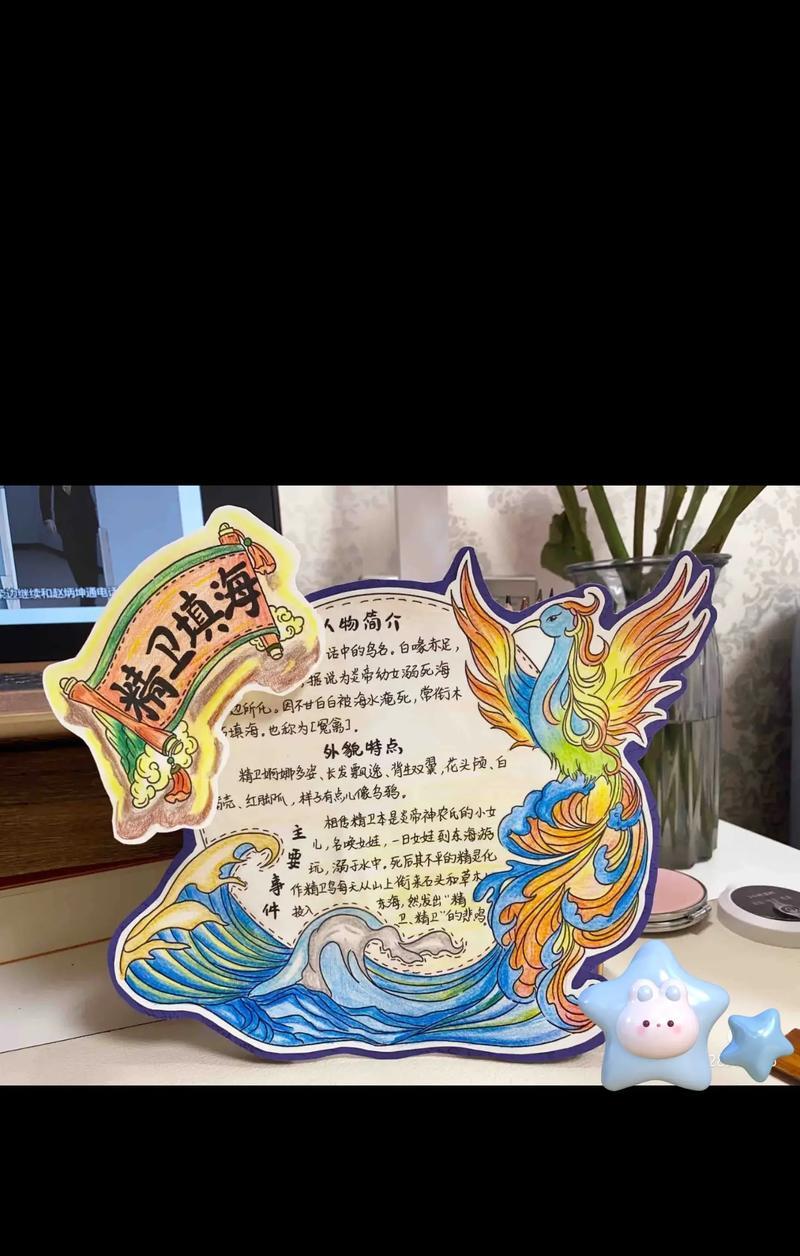 精卫填海
人物简介
话中的鸟名。白喙赤足,
据说为炎帝幼女溺死海
边所化。因不甘白白被海水淹死,常衔木
填海。也称为[冤禽]。
外貌特点
精卫婀娜多姿、长发飘逸、背生双翼,花头颅、白
壳、红脚爪,样子有点儿像乌鸦。
主要事件
相传精卫本是炎帝神农氏的小女
儿,名唤女娃,一日女娃到东海游
玩,溺于水中。死后其不平的精灵化
作精卫鸟每天从山上衔来石头和草木
投入东海,然发出“精
卫、精卫”的悲鸣
边继续和赵炳坤通电话